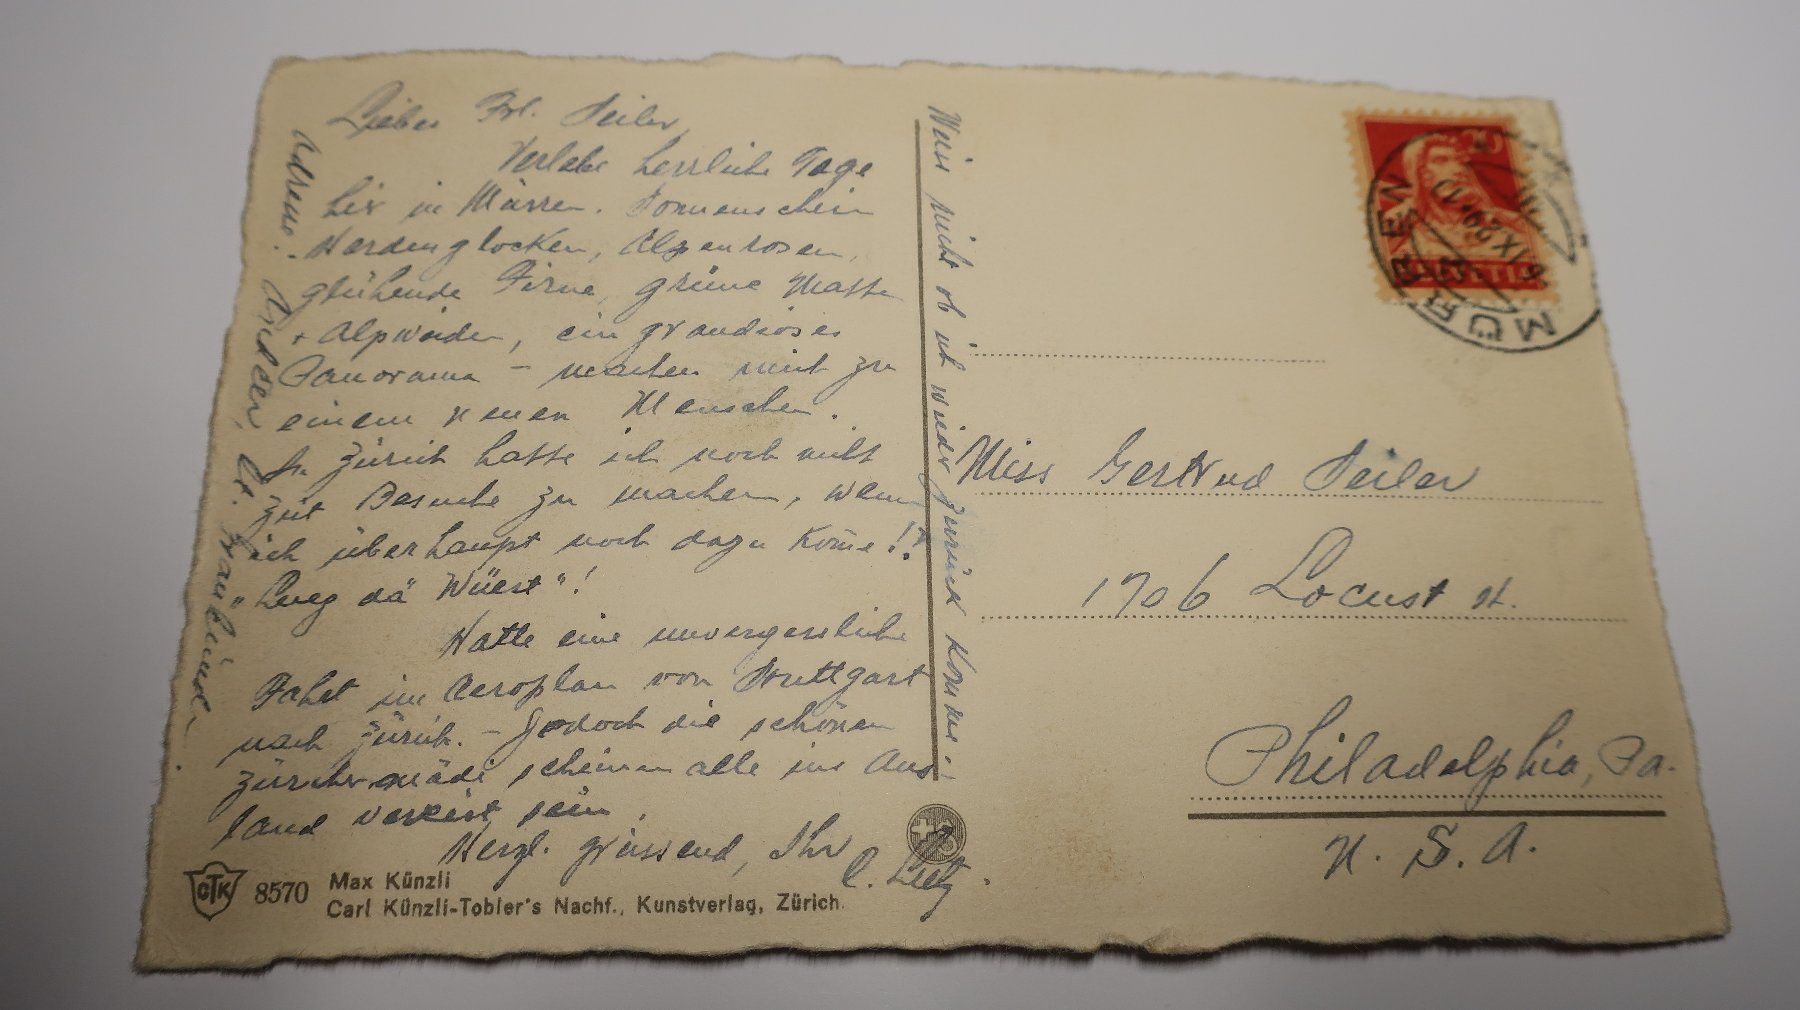 Liebes Frl. Seiler,
Verlebe herrliche Tage
hier in Mürren. Sonnenschein
Herdenglocken, Alpenrosen,
glühende Firne, grüne Matten
+ Alpweiden, ein grandioses
Panorama – machen mich zu
einem neuen Menschen.
In Zürich hatte ich noch nicht
Zeit Besuche zu machen, wenn
ich überhaupt noch dazu kom̄e!?
"Lueg dä Wüest"!
Hatte eine unvergessliche
Fahrt im Aeroplan von Stuttgart
nach Zürich. – Jedoch die schönen
Zürchermädi scheinen alle ins Aus
land verreist sein.
Herzl. grüssend, Ihr
Adresse:
Weiss nicht ob ich wieder zurück komme!
CTK 8570
Max Künzli
Carl Künzli-Tobler's Nachf., Kunstverlag, Zürich
20
HELVETIA
MÜRREN
Miss Gertrud Seiler
1706 Locust st.
Philadelphia, Pa.
U. S. A.